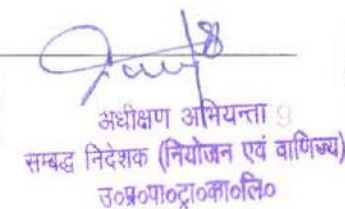 अधीक्षण अभियन्ता 9
सम्बद्ध निदेशक (नियोजन एवं वाणिज्य)
उ०प्र०पा०ट्रा०का०लि०